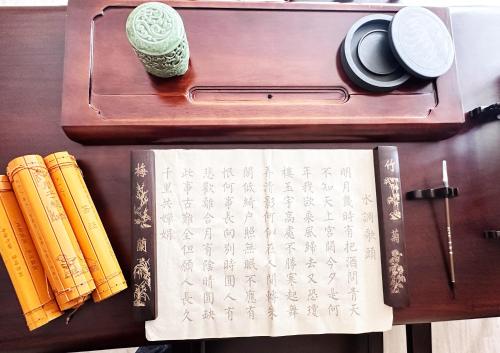 竹
菊
水調歌頭
明月幾時有把酒問青天
不知天上宮闕今夕是何
年我欲乘風歸去又恐瓊
樓玉宇高處不勝寒起舞
弄清影何似在人間轉朱
閣低綺戶照無眠不應有
恨何事長向別時圓人有
悲歡離合月有陰晴圓缺
此事古難全但願人長久
千里共嬋娟
梅
蘭